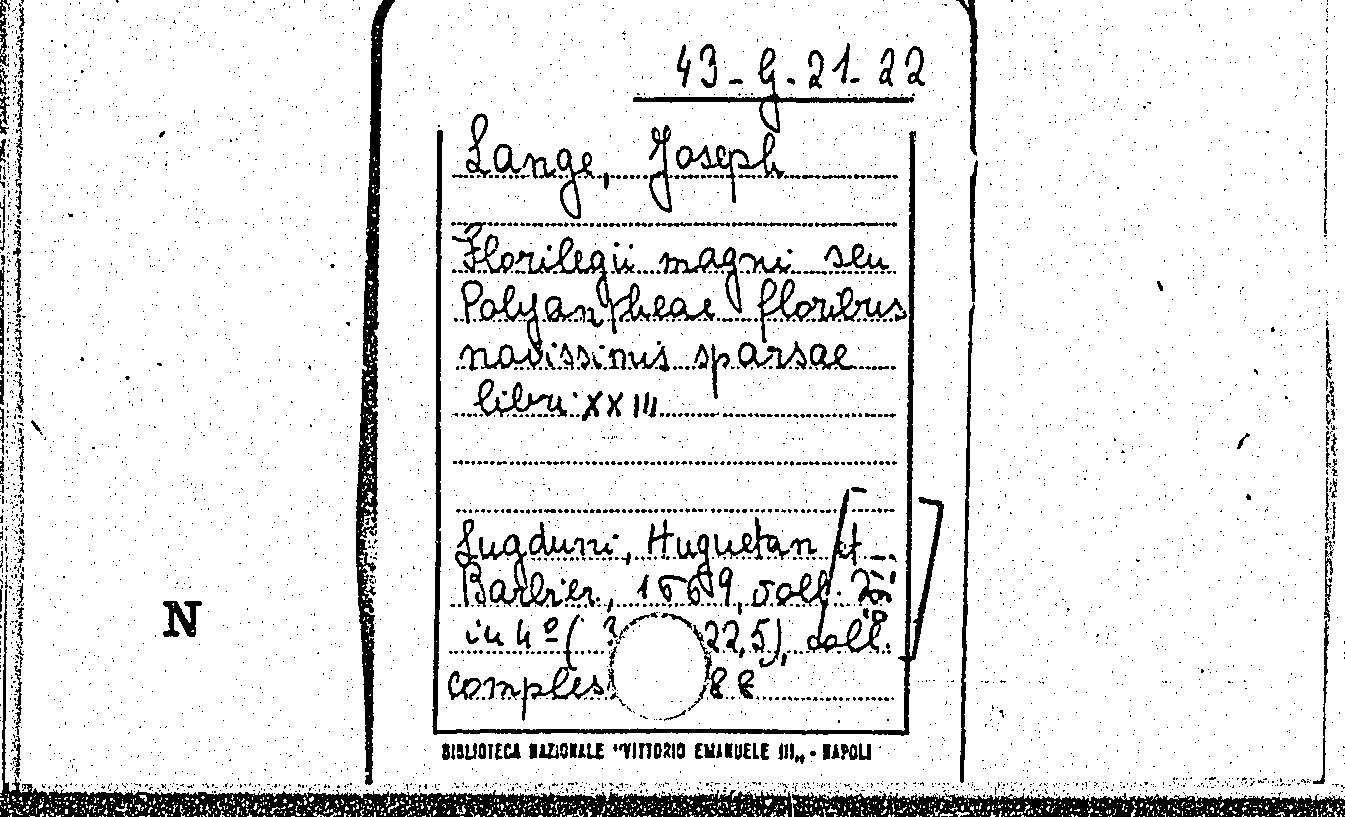 43-G.21-22
Lange, Joseph
Florilegii magni seu
Polyantheae floribus
novissimis sparsae
libri XXIII
Lugduni, Huguetan et
Barbier, 1669, voll. 2
in 4º ( 22,5), coll.
comples 88
BIBLIOTECA NAZIONALE "VITTORIO EMANUELE III„ - NAPOLI
N